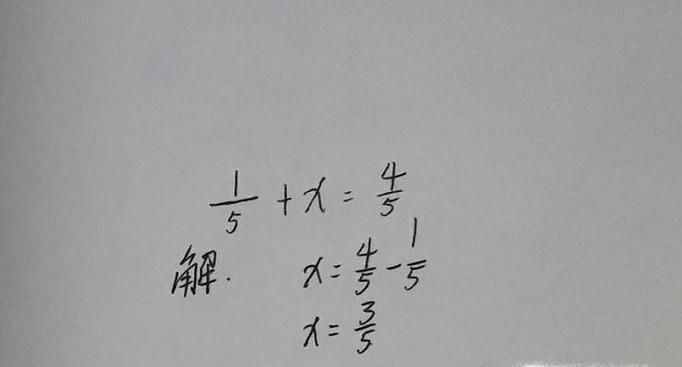 1/5 + x = 4/5
解. x = 4/5 - 1/5
x = 3/5